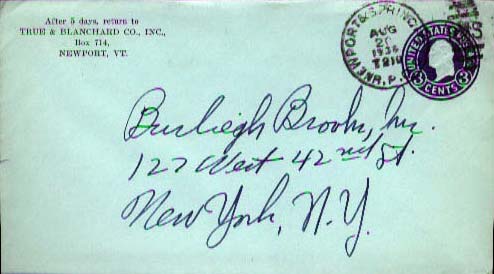 After 5 days, return to
TRUE & BLANCHARD CO., INC.,
Box 714,
NEWPORT, VT.
NEWPORT & SPRING
AUG
1936
R.P.O.
UNITED STATES
3 CENTS 3
Burleigh Brooks, Inc.
127 West 42nd St.
New York, N.Y.